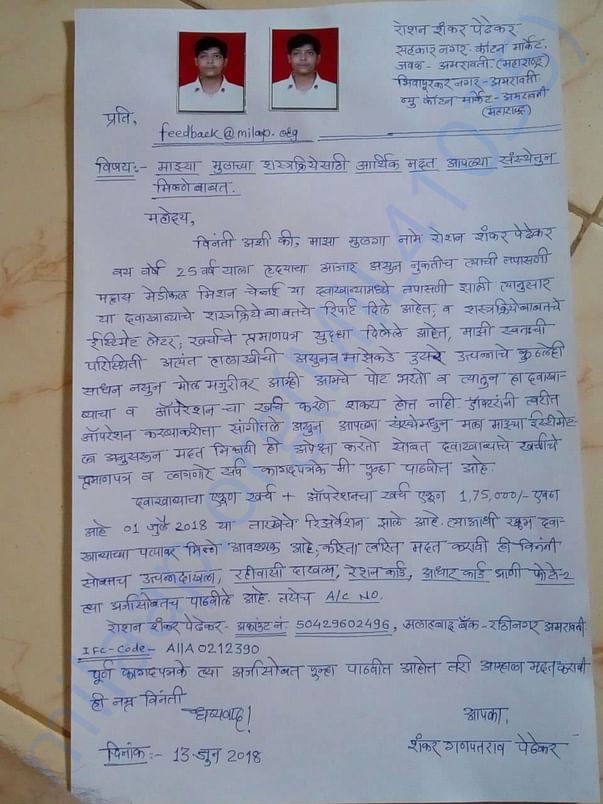 रोशन शंकर पेढेकर
सहकार नगर - कॉटन मार्केट,
जवळ - अमरावती (महाराष्ट्र)
शिवापुरकर नगर - अमरावती
न्यु कॉटन मार्केट - अमरावती
(महाराष्ट्र)
प्रति,
feedback@milap.org
विषय:- माझ्या मुलाच्या शस्त्रक्रियेसाठी आर्थिक मदत आपल्या संस्थेतुन
मिळणेबाबत.
महोदय,
विनंती अशी की, माझा मुलगा नामे रोशन शंकर पेढेकर
वय वर्षे 25 वर्ष याला हृदयाचा आजार असुन नुकतीच त्याची तपासणी
मद्रास मेडीकल मिशन चेन्नई या दवाखान्यामध्ये तपासणी झाली त्यानुसार
या दवाखान्याचे शस्त्रक्रियेबाबतचे रिपोर्ट दिले आहेत, व शस्त्रक्रियेबाबतचे
ईस्टीमेट लेटर, खर्चाचे प्रमाणपत्र सुद्धा दिलेले आहेत, माझी स्वतःची
परिस्थिती अत्यंत हालाखीची असुन व माझेकडे दुसरे उत्पन्नाचे कुठलेही
साधन नसुन मोल मजुरीवर आम्ही आमचे पोट भरतो व त्यातुन हा दवाखा-
न्याचा व ऑपरेशन चा खर्च करणे शक्य होत नाही. डॉक्टरांनी त्वरीत
ऑपरेशन करण्याकरीता सांगीतले असुन आपल्या संस्थेमधुन मला माझ्या ईस्टीमेट-
ला अनुसरून मदत मिळावी ही अपेक्षा करतो सोबत दवाखान्याचे खर्चाचे
प्रमाणपत्र व लागणारे सर्व कागदपत्रके मी पुन्हा पाठवीत आहे.
दवाखान्याचा एकुण खर्च + ऑपरेशनचा खर्च एकुण 1,75,000/- एवढा
आहे 01 जुलै 2018 या तारखेचे रिझर्वेशन झाले आहे. त्याआधी रक्कम दवा-
खान्याच्या पत्यावर मिळणे आवश्यक आहे, करिता त्वरित मदत करावी ही विनंती
सोबतच उत्पन्न दाखला, रहीवासी दाखला, रेशन कार्ड, आधार कार्ड आणी फोटो-2
त्या अर्जासोबतच पाठवीले आहे. तसेच A/C NO.
रोशन शंकर पेढेकर - अकाउंट नं. 50429602496, अलाहाबाद बँक - राठीनगर अमरावती
IFC-Code - AllA 0212390
पूर्ण कागदपत्रके त्या अर्जासोबत पुन्हा पाठवीत आहोत तरी आम्हाला मदत करावी
ही नम्र विनंती
धन्यवाद!
आपका,
शंकर गणपतराव पेढेकर
दिनांक:- 13-जुन 2018